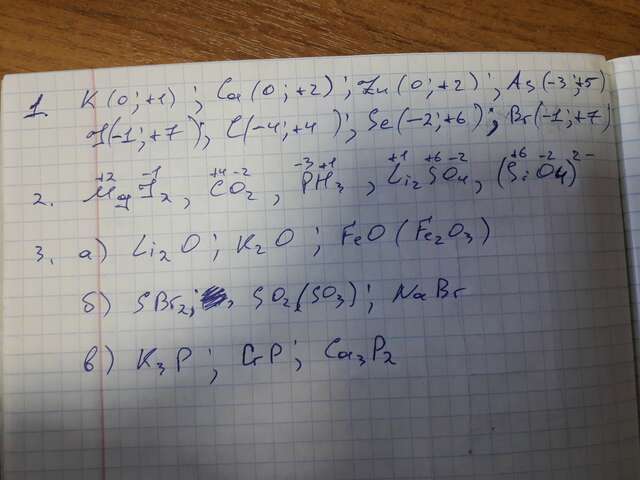 1. K(0;+1); Ca(0;+2); Zn(0;+2); As(-3;+5)
I(-1;+7); C(-4;+4); Se(-2;+6); Br(-1;+7)
2. Mg⁺²I⁻¹₂, C⁺⁴O⁻²₂, P⁻³H⁺¹₃, Li⁺¹₂S⁺⁶O⁻²₄, (Si⁺⁶O⁻²4)²⁻
3. а) Li₂O; K₂O; FeO(Fe₂O₃)
б) SBr₂; SO₂(SO₃); NaBr
в) K₃P; CrP; Ca₃P₂